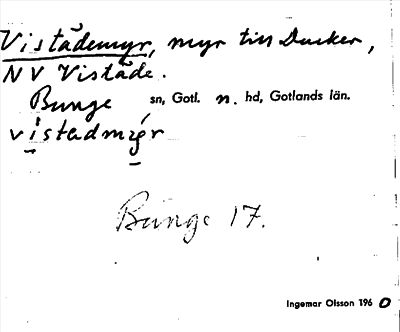 Vistädemyr, myr till Ducker,
NV Vistäde.
Bunge sn, Gotl. n. hd, Gotlands län.
vistadmýr
Bunge 17.
Ingemar Olsson 1960